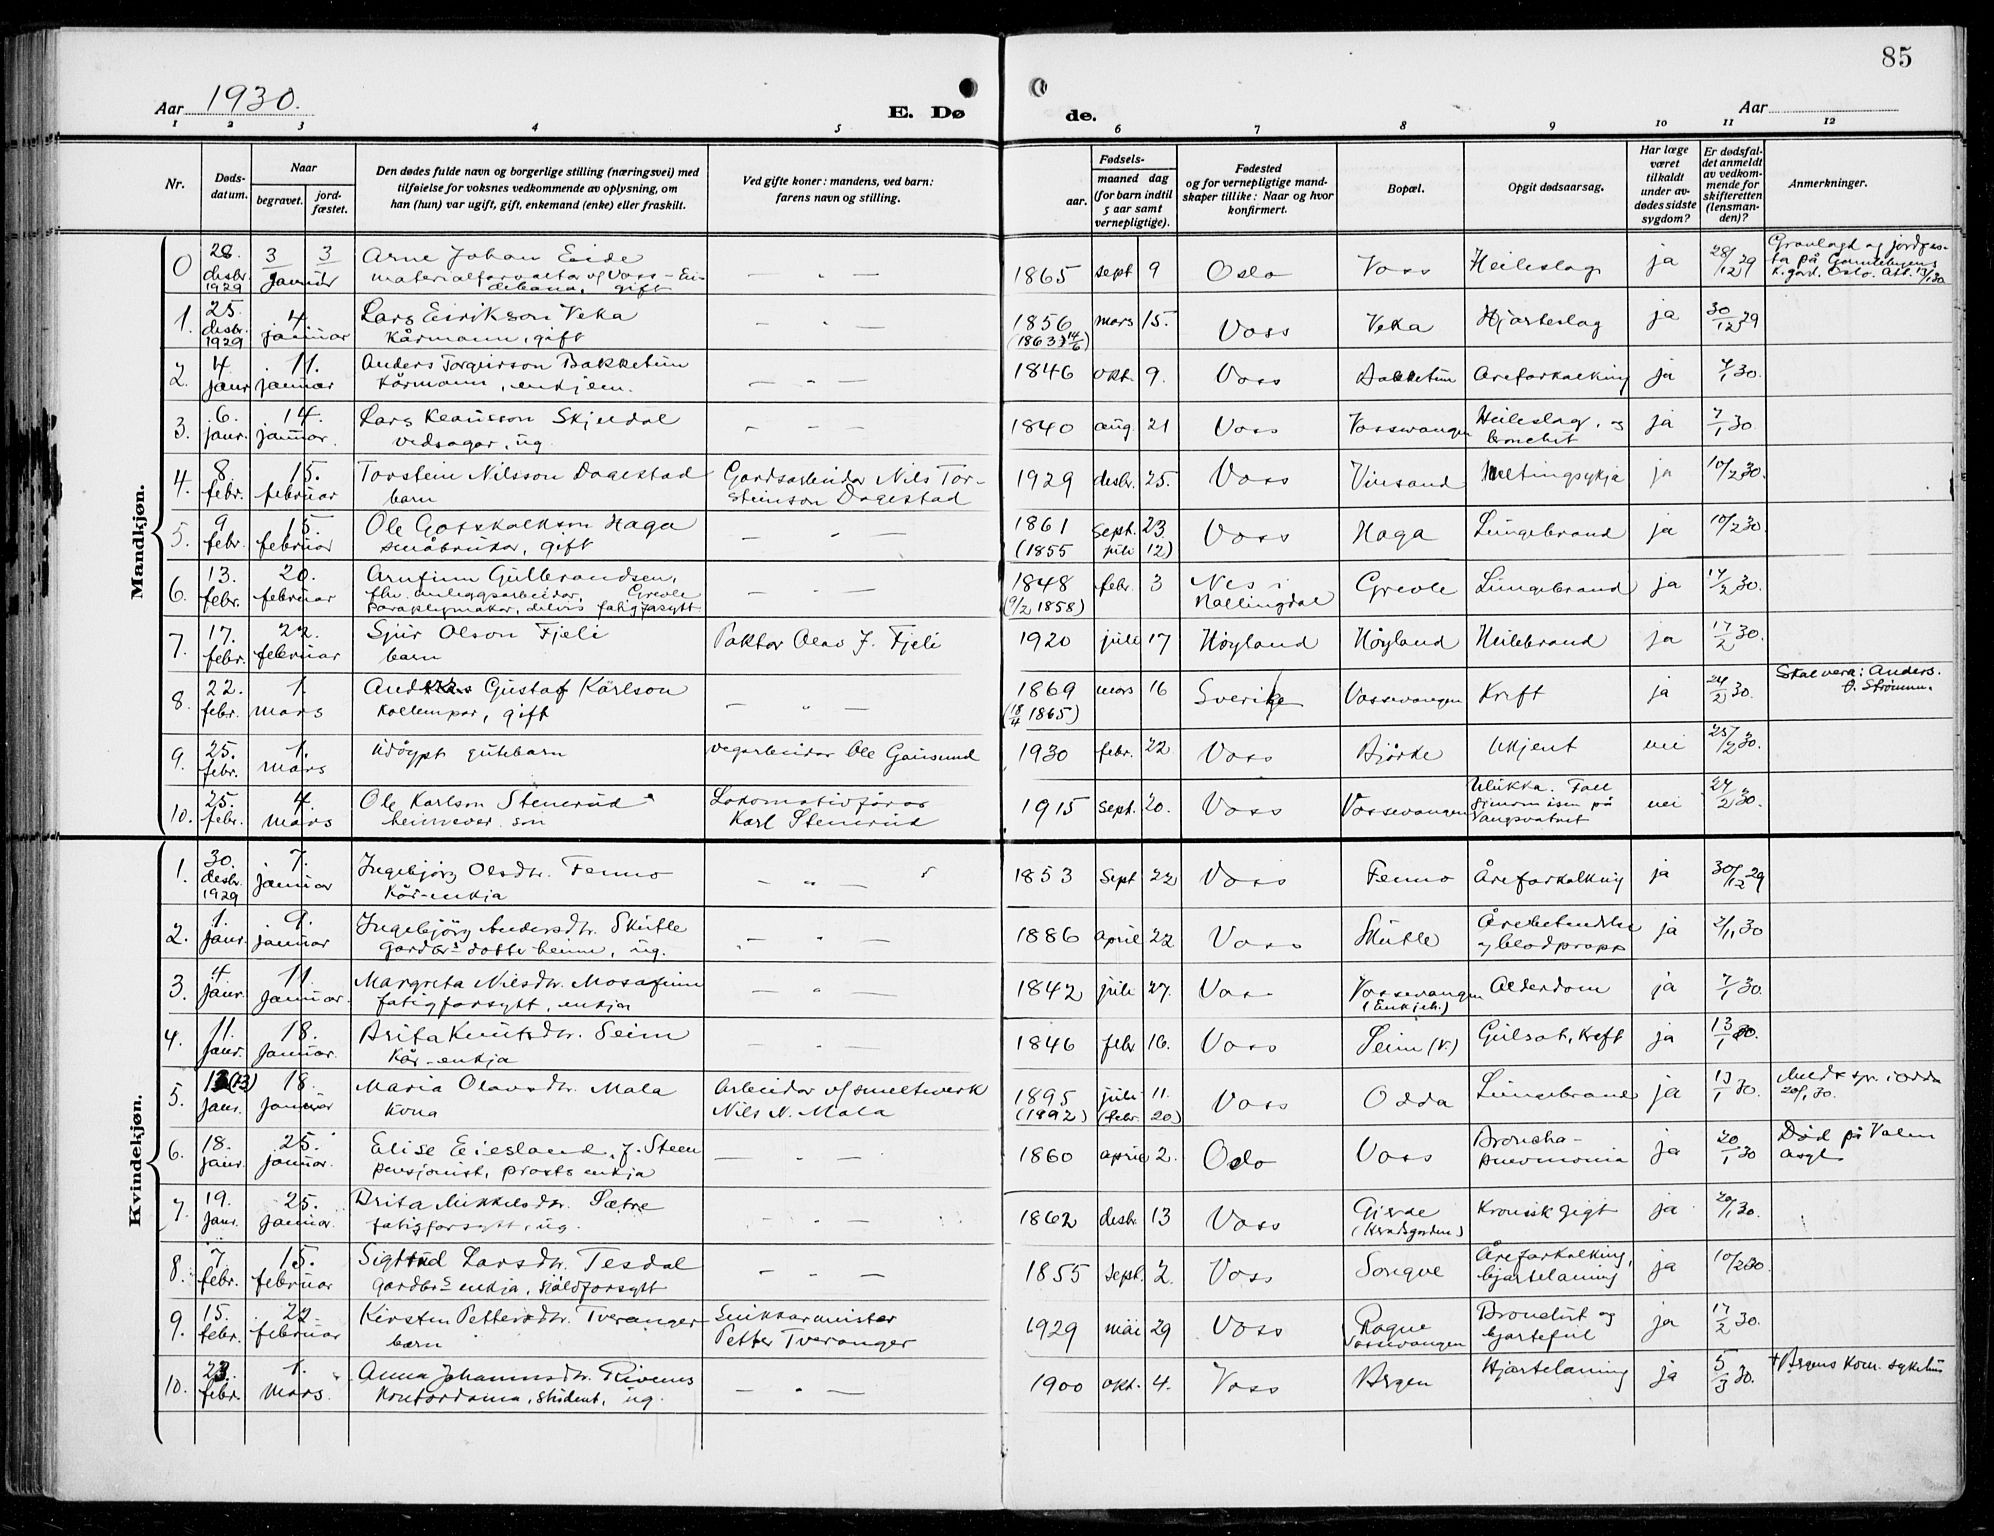 85
Aar 1930.
E. Døde.
Aar
1 2 3 4 5 6 7 8 9 10 11 12
Nr.
Døds-datum.
Naar
begravet.
jord-fæstet.
Den dødes fulde navn og borgerlige stilling (næringsvei) med
tilføielse for voksnes vedkommende av oplysning, om
han (hun) var ugift, gift, enkemand (enke) eller fraskilt.
Ved gifte koner: mandens, ved barn:
farens navn og stilling.
Fødsels-
aar.
maaned dag
(for barn indtil
5 aar samt
vernepligtige).
Fødested
og for vernepligtige mand-
skaper tillike: Naar og hvor
konfirmert.
Bopæl.
Opgit dødsaarsag.
Har læge
været
tilkaldt
under av-
dødes sidste
sygdom?
Er dødsfal-
det anmeldt
av vedkom-
mende for
skifteretten
(lensman-
den)?
Anmerkninger.
Mandkjøn.
0 28. desbr. 1929 3 3 januar Arne Johan Eide materialforvaltar v/ Voss - Ei-debana, gift — " — 1865 sept 9 Oslo Voss Heileslag ja 28/12 29 Gravlagt og jordfes-ta på Gamlebyens k.gard, Oslo. Att. 13/1 30
1. 25. desbr. 1929 4. januar Lars Eirikson Veka Kårmann, gift — " — 1856 mars 15. (1863 14/6) Voss Veka Hjarteslag ja 30/12 29
2. 4. janr 11. januar Anders Torgeirson Bakketun Kårmann, enkjem. — " — 1846 okt. 9. Voss Bakketun Åreforkalking ja 7/1 30.
3. 6. janr. 14. januar. Lars Klausson Skjeldal vedsagar, ug. — " — 1840 aug 21 Voss Vossevangen Heileslag, og bronchit ja 7/1 30
4. 8 febr. 15. februar Torstein Nilsson Dagestad barn Gardsarbeidar Nils Tor-steinson Dagestad 1929 desbr. 25. Voss Vinsand Meltingsykja ja 10/2 30.
5. 9 febr. 15. februar Ole Gotskalkson Haga småbrukar, gift — " — 1861 sept. 23 (1855 juli 12) Voss Haga Lungebrand ja 10/2 30.
6. 13. febr. 20. februar Arnfinn Gulbrandsen, fhv. anleggsarbeidar, Grevle paraplymakar, delvis fatigforsytt — " — 1848 febr. 3 (9/2 1858) Nes i Hallingdal Grevle Lungebrand ja 17/2 30.
7. 17. febr. 22. februar Sjur Olson Fjeli barn Paktar Olav J. Fjeli 1920 juli 17 Høyland Høyland Heilebrand ja 17/2 30.
8. 22. febr. 1. mars Gustaf Karlson kollempar, gift — " — 1869 mars 16 (18/4 1865) Sverike Vossevangen Kreft ja 24/2 30. Skal vera: Anders. O. Strømm.
9. 25. febr. 1. mars Udøypt gutebarn vegarbeidar Ole Gausund 1930 febr. 22 Voss Bjørke Ukjent nei 25/2 30.
10. 25. febr. 4. mars Ole Karlson Stenerud heimever. son Lokomotivførar Karl Stenerud 1915 sept. 20. Voss Vossevangen Ulukka. Fall gjenom isen på Vangsvatnet nei 27/2 30.
Kvindekjøn.
1. 30. desbr. 1929 7. januar Ingebjørg Olsdtr. Fenno Kår-enkja — " — 1853 sept 22 Voss Fenno Åreforkalking ja 30/12 29
2. 1. janr. 9. januar Ingebjørg Andersdtr. Skutle gardbr. dotter heime, ug. — " — 1886 april 22 Voss Skutle Årebetendelse og blodpropp ja 2/1 30
3. 4 janr. 11. januar. Margreta Nilsdtr. Mosafinn fatigforsytt, enkja — " — 1842 juli 27. Voss Vossevangen (Enkjeh.) Alderdom ja 7/1 30.
4. 11. janr. 18. januar. Brita Knutsdtr. Seim Kår-enkja — " — 1846 febr 16. Voss Seim (V.) Gulsot, Kreft ja 13/1 30.
5. (13) janr. 18. januar Maria Olavsdtr. Mala Kona Arbeidar v/ smelteverk Nils N. Mala 1895 juli 11. (1892) (febr. 20) Voss Odda Lungebrand ja 13/1 30. Meld. t. spr. i Odda 20/1 30.
6. 18. janr. 25. januar. Elise Eiesland, f. Steen pensjonist, prosts enkja — " — 1860 april 2. Oslo Voss Broncho-pneumonia ja 20/1 30 Død på Valen asyl
7. 19. janr. 25. januar. Brita Mikkelsdtr. Sætre fatigforsytt, ug. — " — 1862 desbr 13 Voss Gjerde (Heradsgarden) Kronisk gigt ja 20/1 30.
8. 7 febr. 15. februar Sigtrud Larsdtr. Tesdal Gardbr. enkja, sjølvforsytt — " — 1855 sept. 2. Voss Songve Åreforkalking, hjartelaming ja 10/2 30.
9. 15. febr. 22 februar Kirsten Pettersdtr. Tveranger barn Snikkarmeister Petter Tveranger 1929 mai 29 Voss Rogne Vossevangen Bronchit og hjartefeil ja 17/2 30.
10. 23. febr. 1. mars Anna Johannesdtr. Rivenes Kontordama, student, ug. — " — 1900 okt. 4. Voss Bergen Hjartelaming ja 5/3 30. + Bergens Kom. sykehus